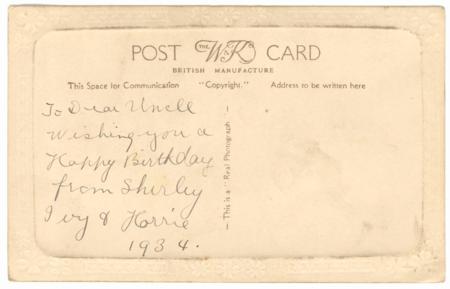 POST THE W & K Co CARD
BRITISH MANUFACTURE
This Space for Communication "Copyright." Address to be written here
To Dear Uncle
Wishing you a
Happy Birthday
from Shirley
Ivy & Horrie
1934.
— This is a "Real Photograph" —